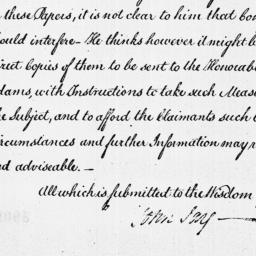 these Papers, it is not clear to him that
ould interfere— He thinks however it might be
rect Copies of them to be sent to the Honorab
dams, with Instructions to take such Meas
he Subject, and to afford the Claimants such
ircumstances and further Information may
nd adviseable. —
All which is submitted to the Wisdom
John Jay —